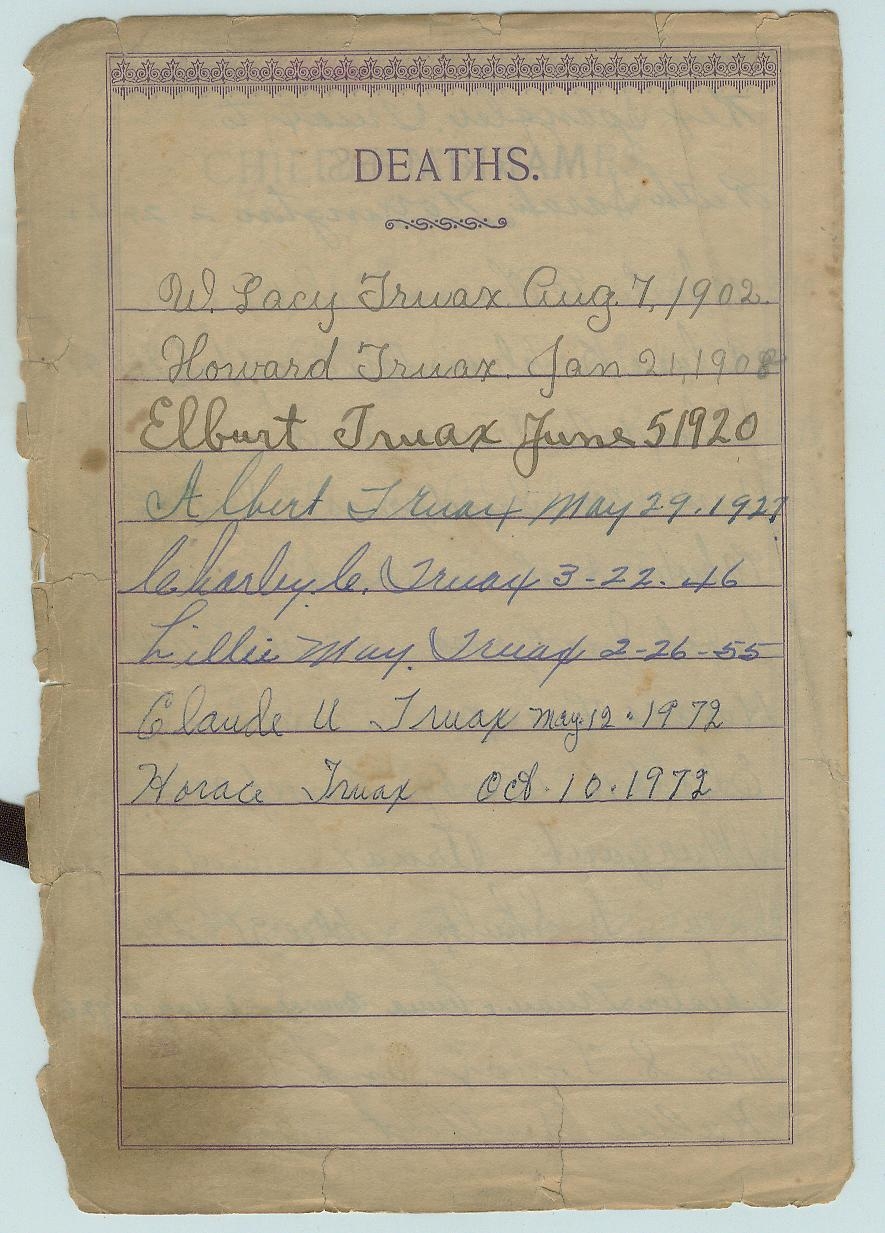 DEATHS.
W. Lacy Truax Aug 7, 1902.
Howard Truax. Jan 21, 1908
Elburt Truax June 5 1920
Albert Truax May 29. 1927
Charley C. Truax 3-22-46
Lillie May Truax 2-26-55
Claude U Truax May. 12. 1972
Horace Truax Oct. 10. 1972